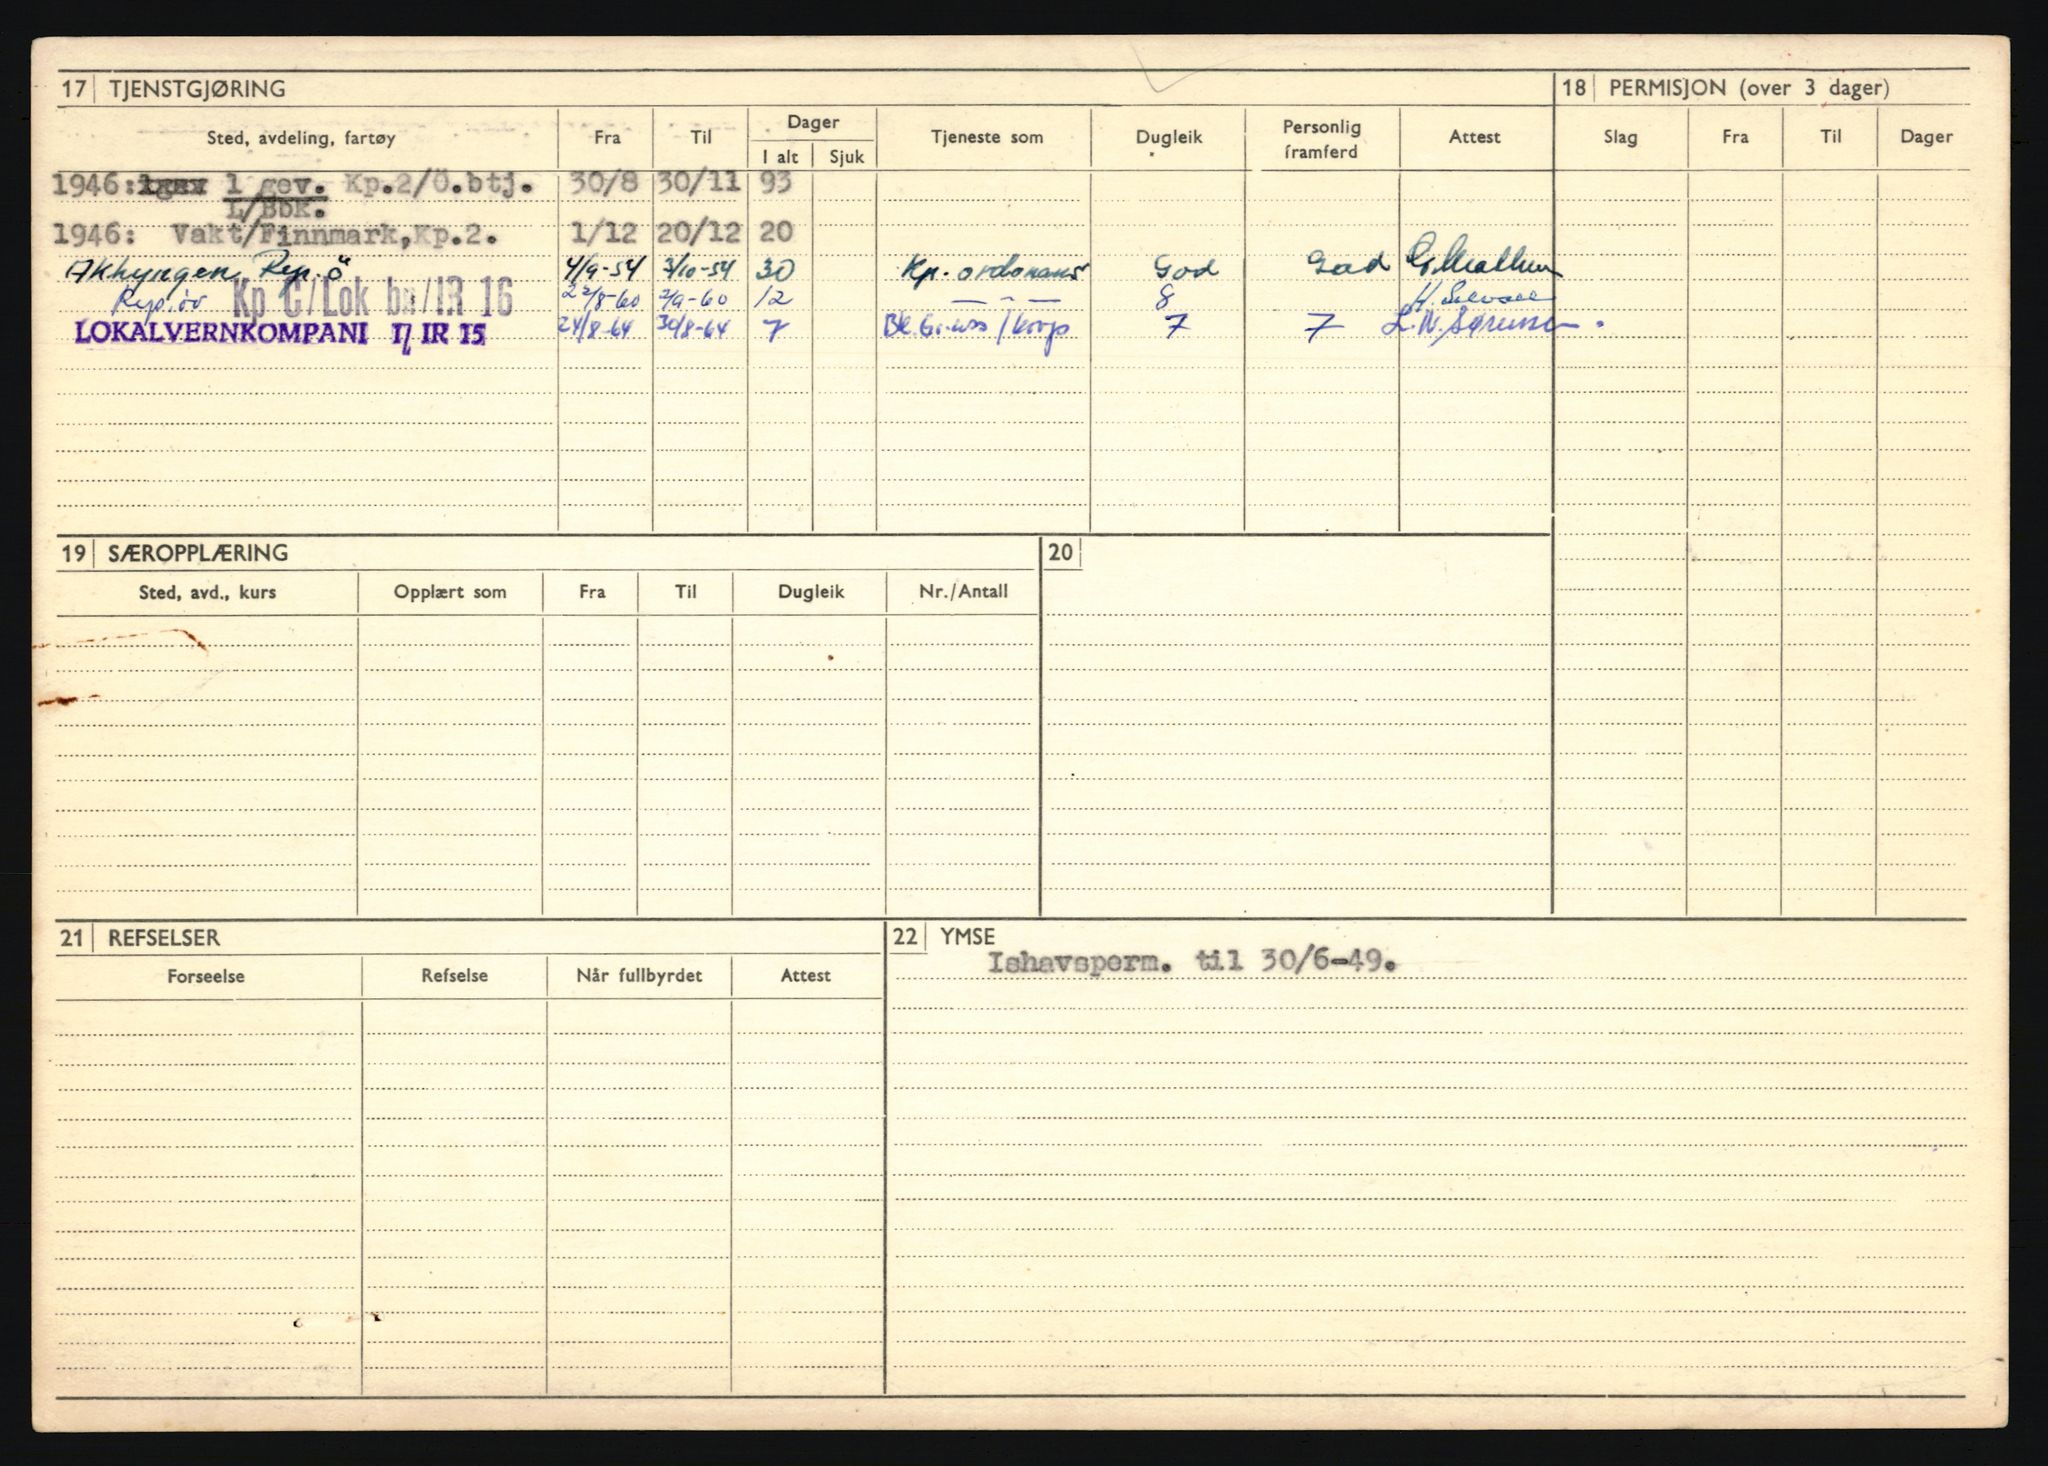 17 TJENSTGJØRING 18 PERMISJON (over 3 dager)
Sted, avdeling, fartøy Fra Til Dager Tjeneste som Dugleik Personlig framferd Attest Slag Fra Til Dager
I alt Sjuk
1946: 1 gev. Kp.2/Ö.btj. 30/8 30/11 93
L/Bbk.
1946: Vakt/Finnmark,Kp.2. 1/12 20/12 20
Rep.ö 4/9-54 3/10-54 30 Kp. ordonans God God
Rep.öv Kp C/Lok bn/IR 16 22/8-60 2/9-60 12 — " — 8 H.
LOKALVERNKOMPANI 17 IR 15 24/8-64 30/8-64 7 / korp 7 7 L.N. Sørensen.
19 SÆROPPLÆRING 20
Sted, avd., kurs Opplært som Fra Til Dugleik Nr./Antall
21 REFSELSER 22 YMSE
Ishavsperm. til 30/6-49.
Forseelse Refselse Når fullbyrdet Attest